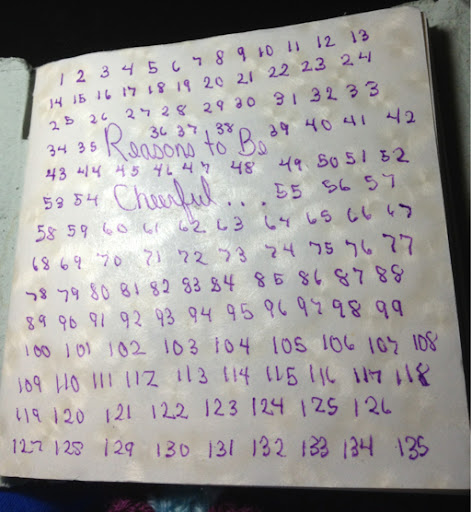 1 2 3 4 5 6 7 8 9 10 11 12 13
14 15 16 17 18 19 20 21 22 23 24
25 26 27 28 29 30 31 32 33
34 35 36 37 38 39 40 41 42
Reasons to Be
43 44 45 46 47 48 49 50 51 52
53 54 Cheerful... 55 56 57
58 59 60 61 62 63 64 65 66 67
68 69 70 71 72 73 74 75 76 77
78 79 80 81 82 83 84 85 86 87 88
89 90 91 92 93 94 95 96 97 98 99
100 101 102 103 104 105 106 107 108
109 110 111 112 113 114 115 116 117 118
119 120 121 122 123 124 125 126
127 128 129 130 131 132 133 134 135